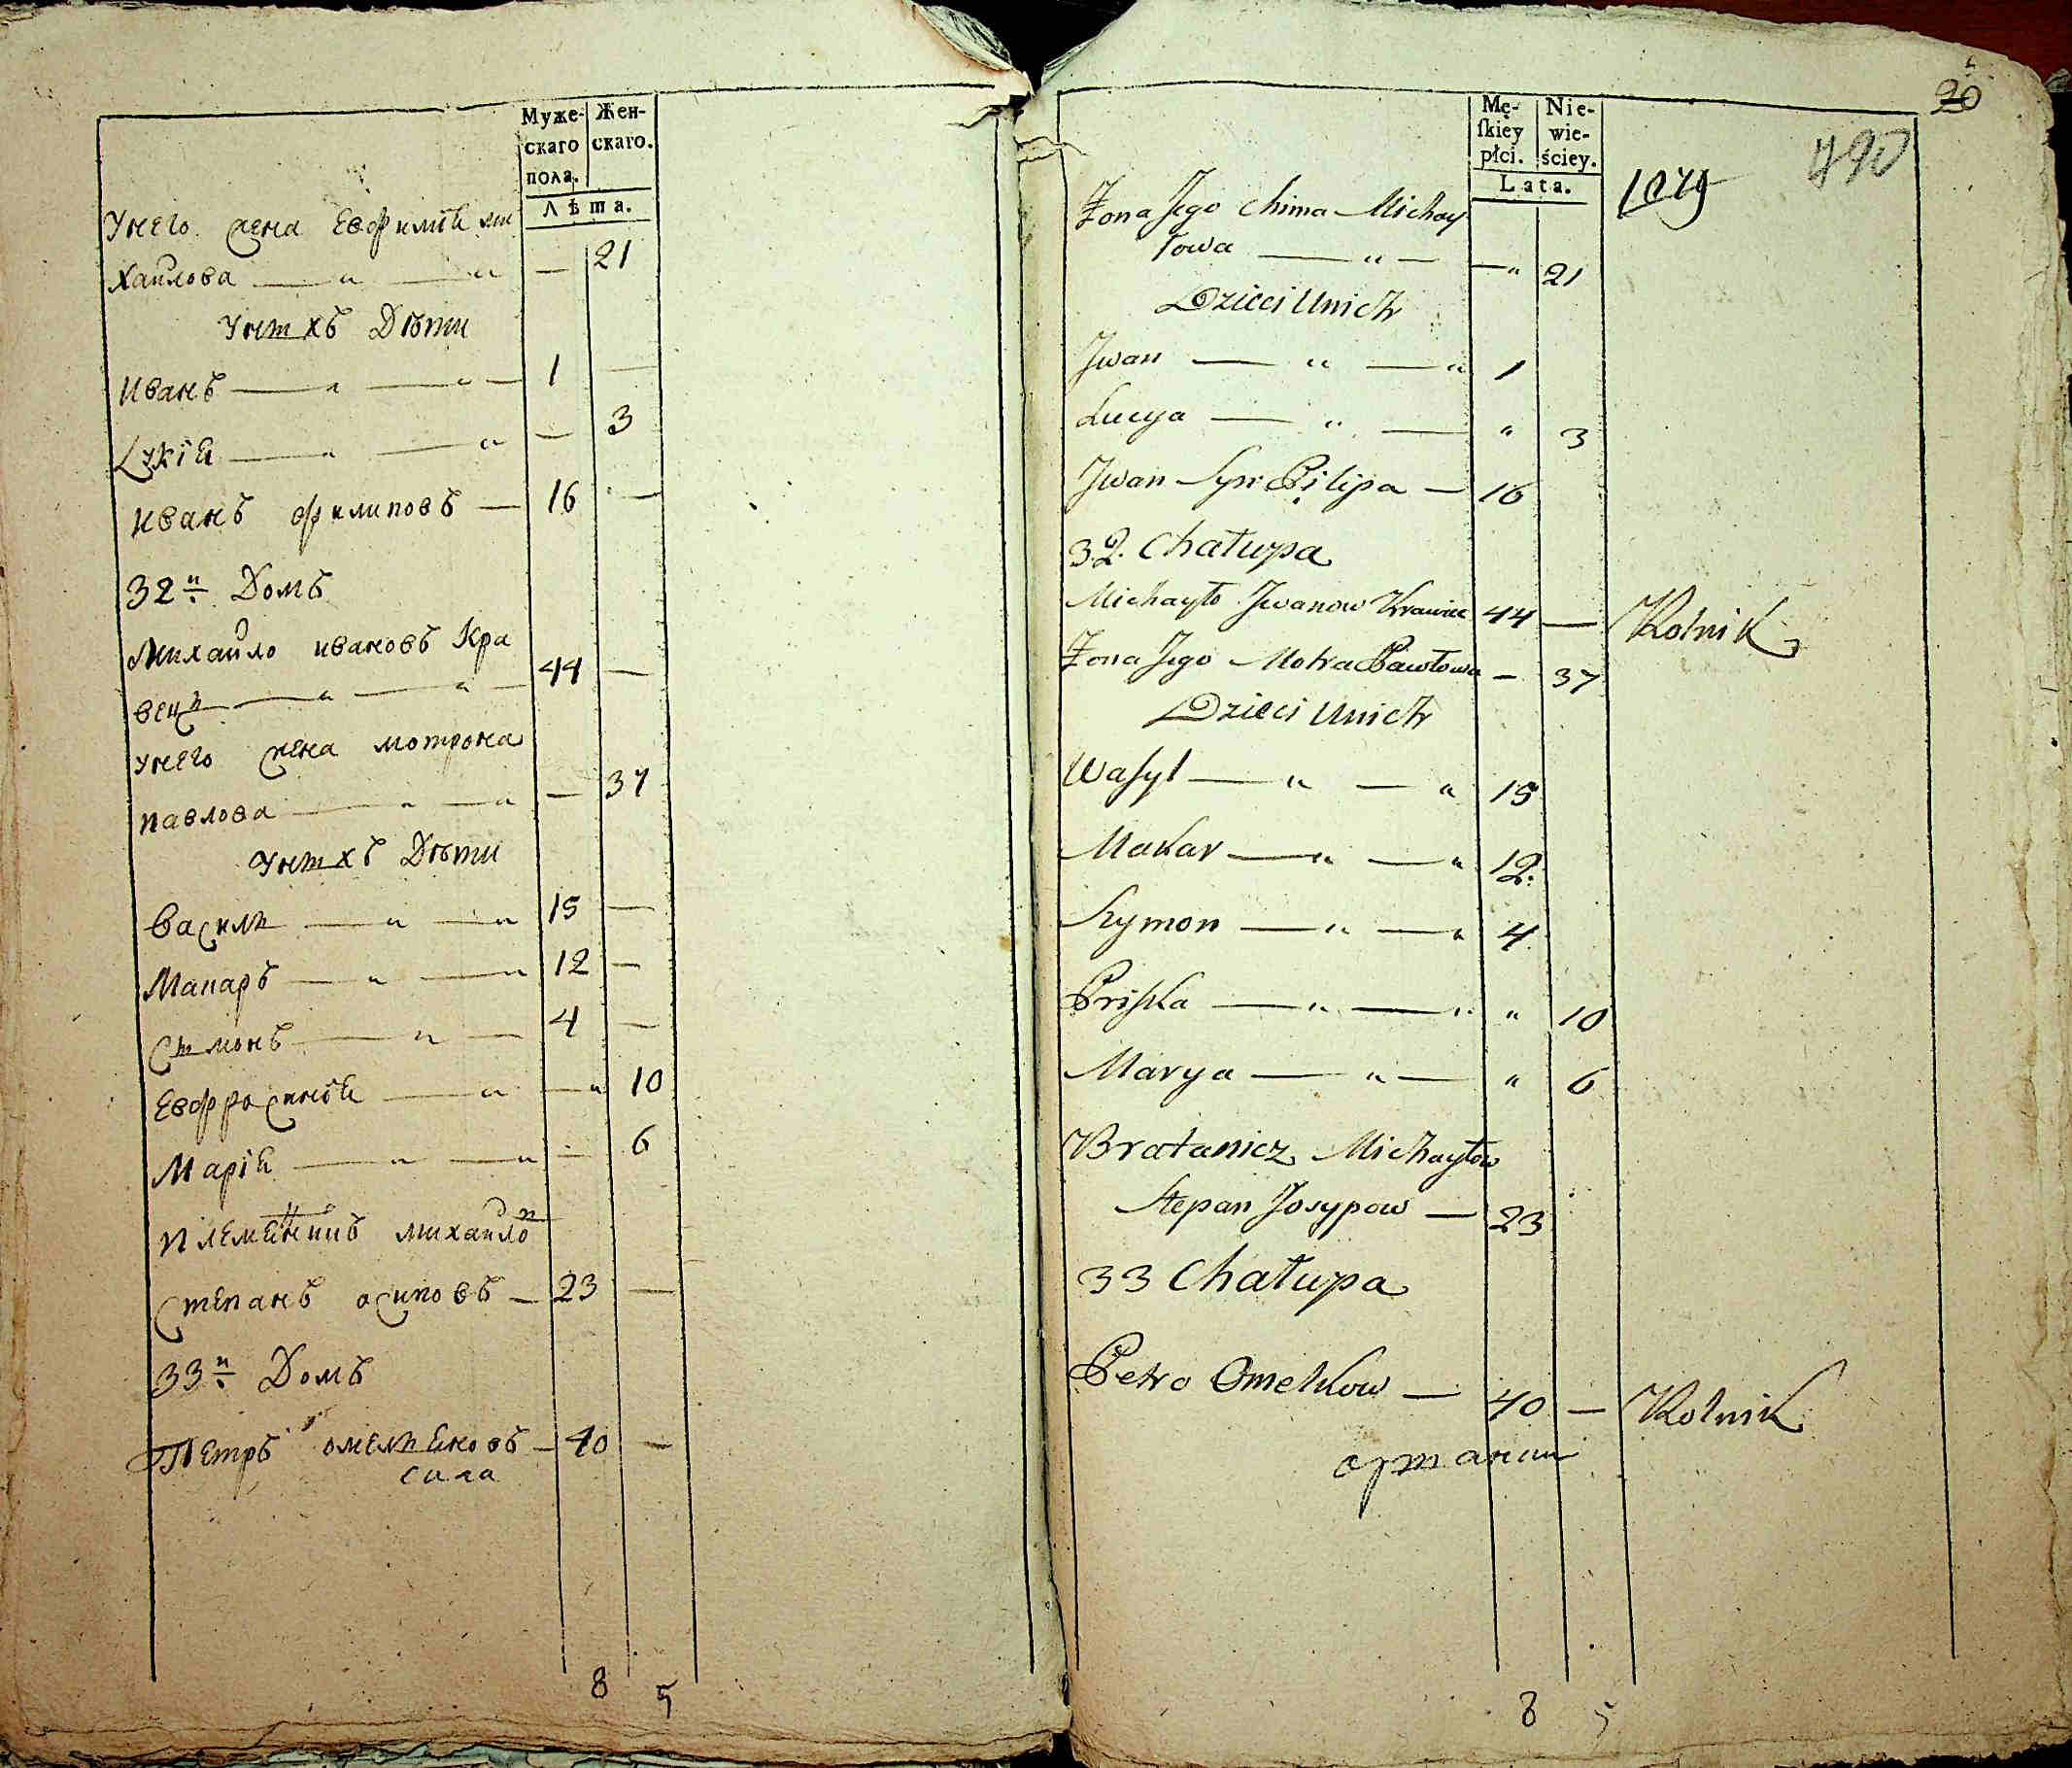 Муже-
скаго
пола.
Жен-
скаго.
Лѣта.
Унего жена Евфимія ми
хайлова — — 21
Унихъ Дѣти
Иванъ — 1 —
Лукія — — 3
Иванъ филиповъ — 16 —
32й Домъ
Михайло ивановъ Кра
вецъ — 44 —
унего жена мотрона
павлова — — 37
Унихъ Дѣти
Василь — 15 —
Макаръ — 12 —
Симонъ — 4 —
Евфросинія — — 10
Марія — — 6
племенникъ михайло
Степанъ осиповъ — 23 —
33й Домъ
Петръ омельяновъ — 40 —
сила
8 5
20
490
Mę-
ſkiey
płci.
Nie-
wie-
ściey.
Lata.
Żona Jego Chima Michay
łowa — „ — — „ 21
Dzieci Unich
Jwan — „ — „ 1
Lucya — „ — „ 3
Jwan Syn Pilipa — 16
32. Chałupa
Michayło Jwanow Krawiec 44 — Rolnik
Żona Jego Motra Pawłowa — 37
Dzieci Unich
Waſyl — „ — „ 15
Makar — „ — „ 12.
Szymon — „ — „ 4
Priſka — „ — „ „ 10
Marya — „ — „ 6
Bratanicz Michayłow
Stepan Josypow — 23
33 Chałupa
Petro Omelkow — 40 — Rolnik
8 5